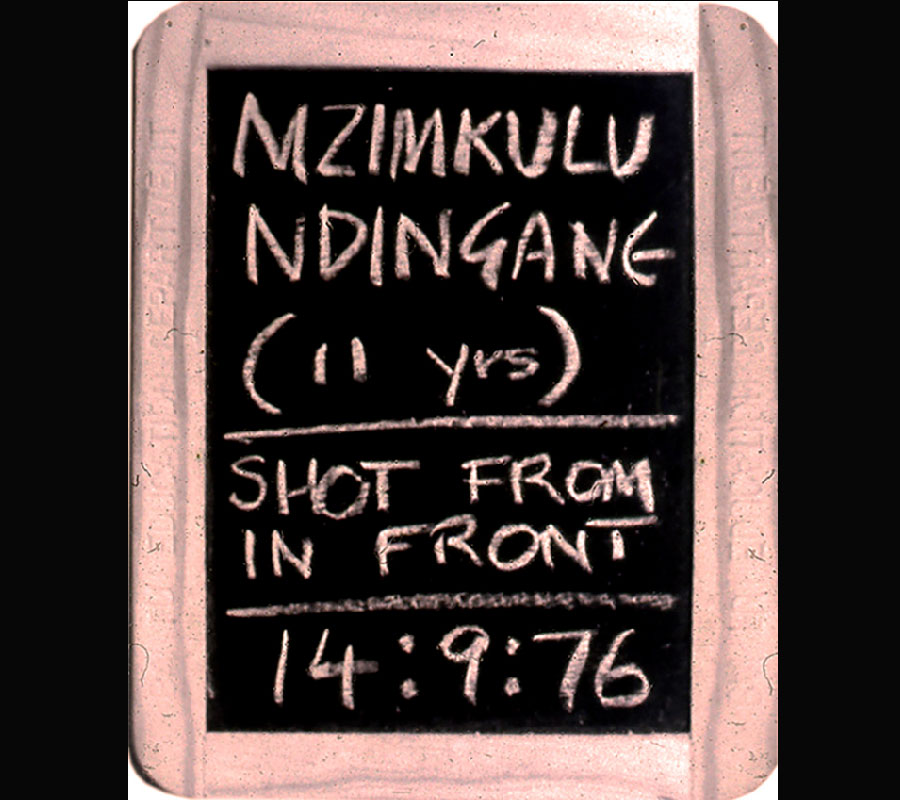 MZIMKULU
NDINGANE
(11 yrs)
SHOT FROM
IN FRONT
14:9:76